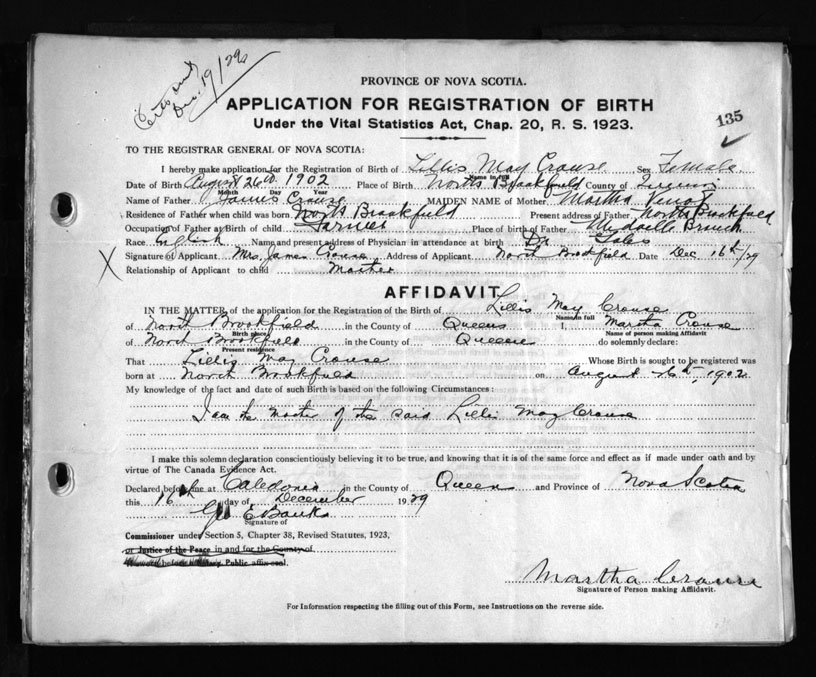 Dec. 19/29
PROVINCE OF NOVA SCOTIA.
APPLICATION FOR REGISTRATION OF BIRTH
135
Under the Vital Statistics Act, Chap. 20, R. S. 1923.
TO THE REGISTRAR GENERAL OF NOVA SCOTIA:
I hereby make application for the Registration of Birth of Lillis May Crouse Sex Female
Name in full
Date of Birth August 26th 1902 Place of Birth North Brookfield County of Queens
Month Day Year
Name of Father James Crouse MAIDEN NAME of Mother Martha Venot
Residence of Father when child was born North Brookfield Present address of Father North Brookfield
Occupation of Father at Birth of child Farmer Place of birth of Father Branch
Race English Name and present address of Physician in attendance at birth Dr
Signature of Applicant Mrs. James Crouse Address of Applicant North Brookfield Date Dec 16th/29
X
Relationship of Applicant to child Mother
AFFIDAVIT
IN THE MATTER of the application for the Registration of the Birth of Lillis May Crouse
Name in full
of North Brookfield in the County of Queens I, Martha Crouse
Birth place Name of person making Affidavit
of North Brookfield in the County of Queens do solemnly declare:
Present residence
That Lillis May Crouse Whose Birth is sought to be registered was
born at North Brookfield on August 26th, 1902
My knowledge of the fact and date of such Birth is based on the following Circumstances:
I am the Mother of the said Lillis May Crouse
I make this solemn declaration conscientiously believing it to be true, and knowing that it is of the same force and effect as if made under oath and by
virtue of The Canada Evidence Act.
Declared before me at Caledonia in the County of Queens and Province of Nova Scotia
this 16th day of December 1929
Geo E Banks
Signature of
Commissioner under Section 5, Chapter 38, Revised Statutes, 1923,
or Justice of the Peace in and for the County of
Public affix seal.
Martha Crouse
Signature of Person making Affidavit.
For Information respecting the filling out of this Form, see Instructions on the reverse side.